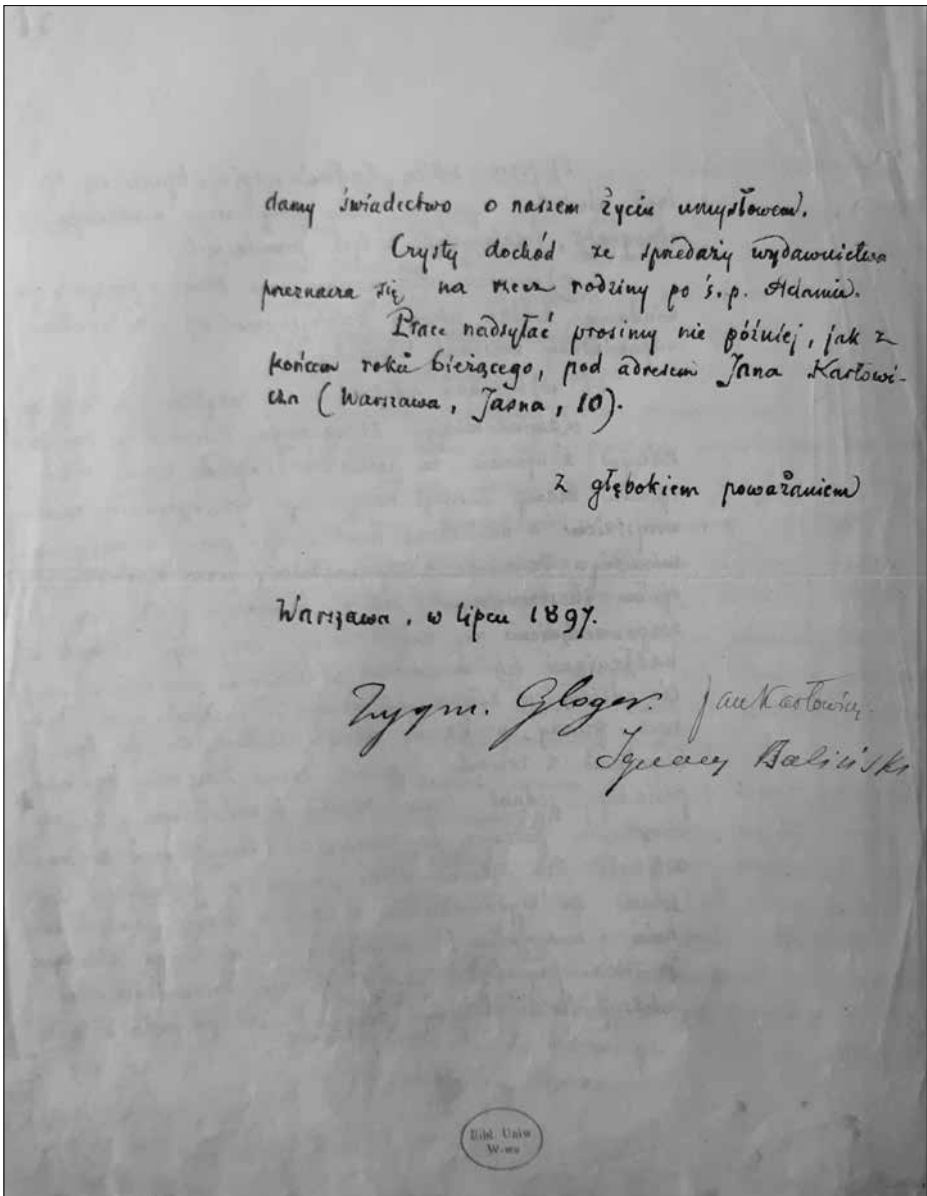 damy świadectwo o naszem życiu umysłowem.
Czysty dochód ze sprzedaży wydawnictwa
przeznacza się na rzecz rodziny po ś. p. Adamie.
Prace nadsyłać prosimy nie później, jak z
końcem roku bieżącego, pod adresem Jana Karłowi-
cza (Warszawa, Jasna, 10).
z głębokiem poważaniem
Warszawa, w lipcu 1897.
Zygm. Gloger. Jan Karłowicz.
Ignacy Baliński
Bibl. Uniw
W-wa